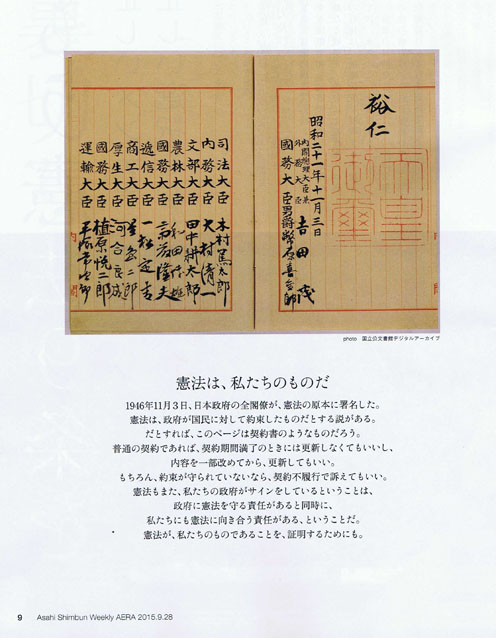 裕仁
天皇御璽
昭和二十一年十一月三日
内閣総理大臣兼
外務大臣 吉田茂
国務大臣 男爵 幣原喜重郎
司法大臣 木村篤太郎
内務大臣 大村清一
文部大臣 田中耕太郎
農林大臣 和田博雄
国務大臣 斎藤隆夫
逓信大臣 一松定吉
商工大臣 星島二郎
厚生大臣 河合良成
国務大臣 植原悦二郎
運輸大臣 平塚常次郎
photo 国立公文書館デジタルアーカイブ
憲法は、私たちのものだ
1946年11月3日、日本政府の全閣僚が、憲法の原本に署名した。
憲法は、政府が国民に対して約束したものだとする説がある。
だとすれば、このページは契約書のようなものだろう。
普通の契約であれば、契約期間満了のときには更新しなくてもいいし、
内容を一部改めてから、更新してもいい。
もちろん、約束が守られていないなら、契約不履行で訴えてもいい。
憲法もまた、私たちの政府がサインをしているということは、
政府に憲法を守る責任があると同時に、
私たちにも憲法に向き合う責任がある、ということだ。
憲法が、私たちのものであることを、証明するためにも。
9 Asahi Shimbun Weekly AERA 2015.9.28